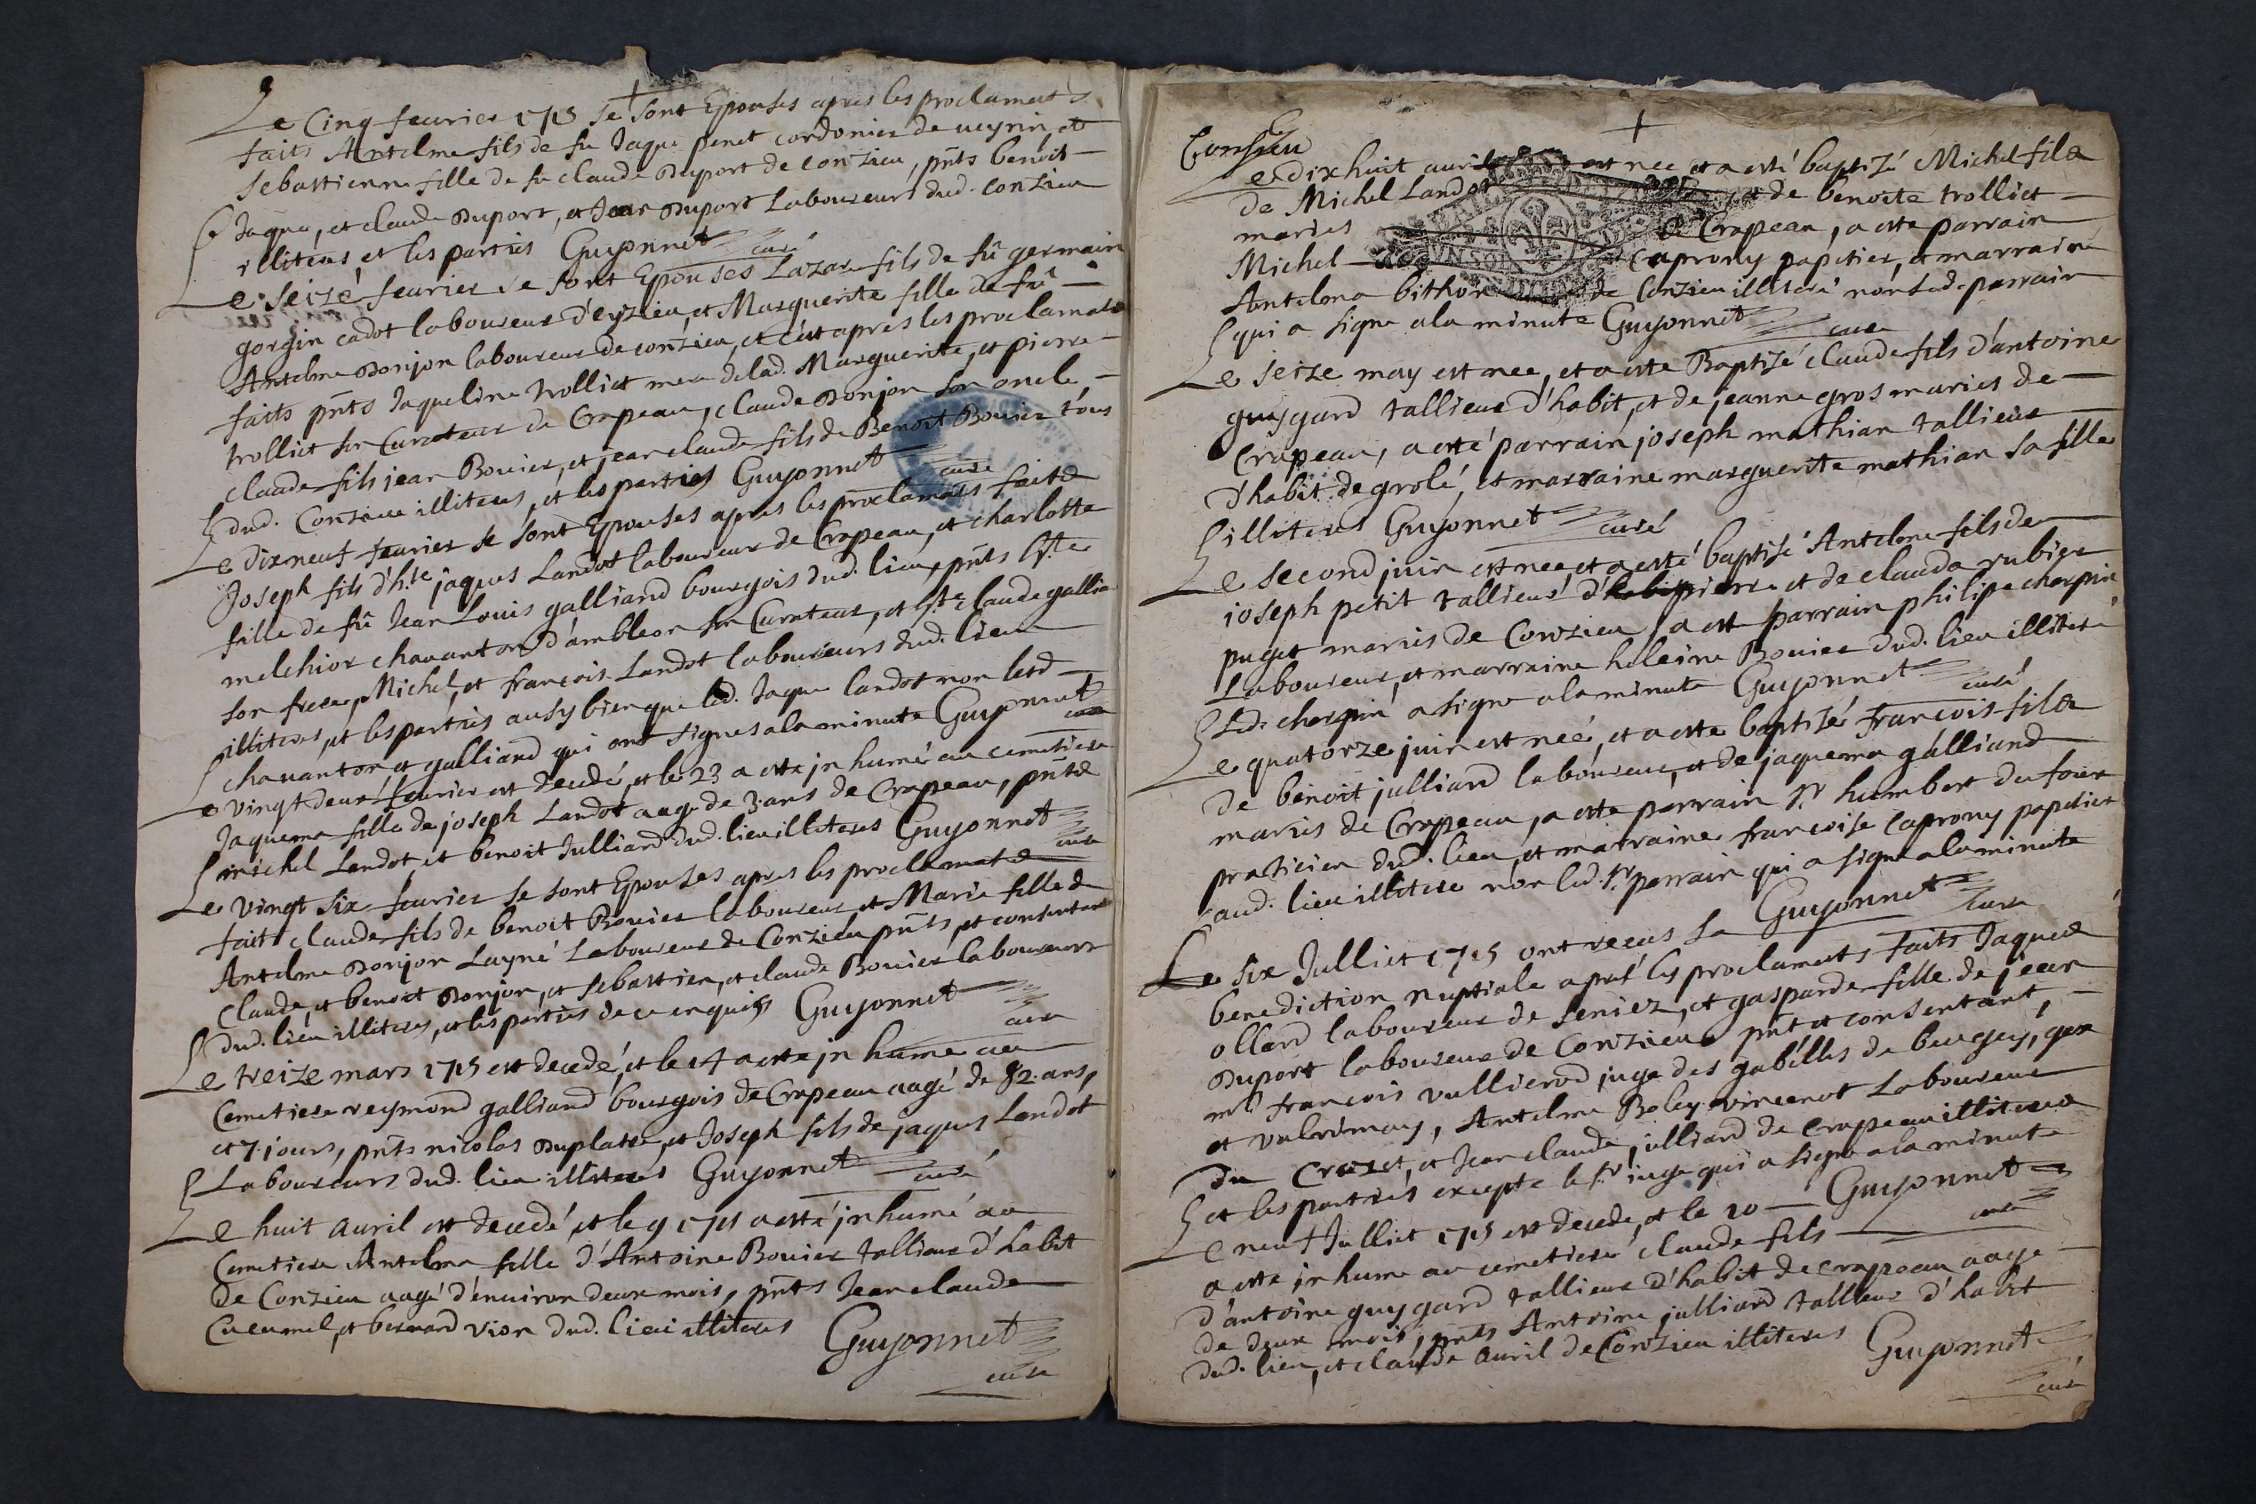 Le Cinq feurier 1715 se sont Epouses apres les proclamats
faits Antelme fils de fu Jaque penet cordonier de ueyrin, et
sebastienne fille de fu claude Duport de conzieu, pnts benoit
Jaques, et claude Duport, et Jean Duport Laboureurs dud. conzieu
illiteres et les parties Guyonnet curé
Le seizé feurier se sont Epouses Lazare fils de fû germain
gorgin cadot laboureur d'eyzieu, et Marguerite fille de fû
Antelme Donjon laboureur de conzieu, et c'est apres les proclamats
faits pnts Jaqueline trolliet mere delad. Marguerite, et pierre
trolliet son Curateur de Crapeau, claude Donjon son oncle,
claude fils jean Bouier, et jean claude fils de Benoit Bouier tous
dud. Conzieu illiteres, et les parties Guyonnet curé
Le dixneuf feurier se sont Epouses apres les proclamats faits
Joseph fils d'h.te jaques Landot laboureur de Crapeau, et charlotte
fille de fû Jean Louis galliand bourgois dud. lieu, pnts
melchior chauanton d'ambleon son Curateur, et claude galliand
son frere, Michel, et françois Landot laboureurs dud. lieu
illiteres, et les parties ausy bien que led. Jaque landot non lesd.
chauanton et galliand qui ont signes ala minute Guyonnet curé
Le vingt deux feurier est decedé, et le 23 a este jnhumé au cemetiere
Jaquema fille de joseph Landot aage de 3 ans de Crapeau, pnts
michel Landot, et benoit Julliard dud. lieu illiteres Guyonnet curé
Le vingt six feurier se sont Epouses apres les proclamats
faits claude fils de benoit Bouier laboureur et Marie fille de
Antelme Donjon Layné Laboureur de Conzieu pnts, et consentans
Claude, et benoit Donjon, et sebastien, et claude Bouier laboureurs
dud. lieu illiteres, et les parties de ce enquis Guyonnet curé
Le treize mars 1715 est decedé, et le 14 a este jnhumé au
Cemetiere reymond galliand bourgois de Crapeau aagé de 82 ans,
et 7 jours, pnts nicolas Duplatre, et Joseph fils de jaques Landot
Laboureurs dud. lieu illiteres Guyonnet curé
Le huit auril est decedé, et le 9 1715 a esté jnhumé au
Cemetiere Antelma fille d'Antoine Bouier tallieur d'habit
de Conzieu aagé d'enuiron deux mois, pnts Jean claude
Cucumel, et bernard vion dud. lieu illiteres Guyonnet
curé
Conzieu
Le dixhuit auril est nee et a esté baptizé Michel fils
de Michel Landot et de benoite trolliet
maries de Crapeau, a este parrain
Michel Caprony papetier, et marraine
Antelma bithon de Conzieu illiteré non led. parrain
qui a signe ala minute Guyonnet curé
Le seize may est nee, et a este Baptizé claude fils d'antoine
guygard tallieur d'habit, et de jeanne gros maries de
Crapeau, a esté parrain joseph mathian tallieur
d'habit de grolé, et marraine marguerite mathian sa fille
illiteres Guyonnet curé
Le second juin est nee, et a esté baptisé Antelme fils de
joseph petit tallieur d'habit pierre et de claude rubier
puget maries de Conzieu, a este parrain philipe cherpin
Laboureur, et marraine heleine Bouier dud. lieu illiteré
Led. cherpin a signe ala minute Guyonnet curé
Le quatorze juin est neé, et a este baptizé françois fils
de benoit julliard laboureur, et de jaquema galliand
maries de Crapeau, a este parrain Sr humbert du four
praticien dud. lieu, et marraine françoise Caprony papetier
aud. lieu illitere non led. Sr parrain qui a signe ala minute
Guyonnet curé
Le six Julliet 1715 ont receus la
benediction nuptiale apres les proclamats faits Jaques
ollard laboureur de seniez, et gasparde fille de jean
Duport laboureur de Conzieu pnt et consentant,
mr françois vullierod juge des gabelles de beugey, gex
et valrimay, Antelme Boley vincenot Laboureur
du Crozet, et Jean claude julliard de Crapeau illiteres
et les parties excepte le Sr juge qui a signe ala minute
Guyonnet curé
Le neuf Julliet 1715 est decedé, et le 10
a este jnhume au cemetiere claude fils
d'antoine guygard tallieur d'habit de crapeau aage
de deux mois, pnts Antoine julliard tallieur d'habit
dud. lieu, et claude auril de Conzieu illiteres Guyonnet
curé